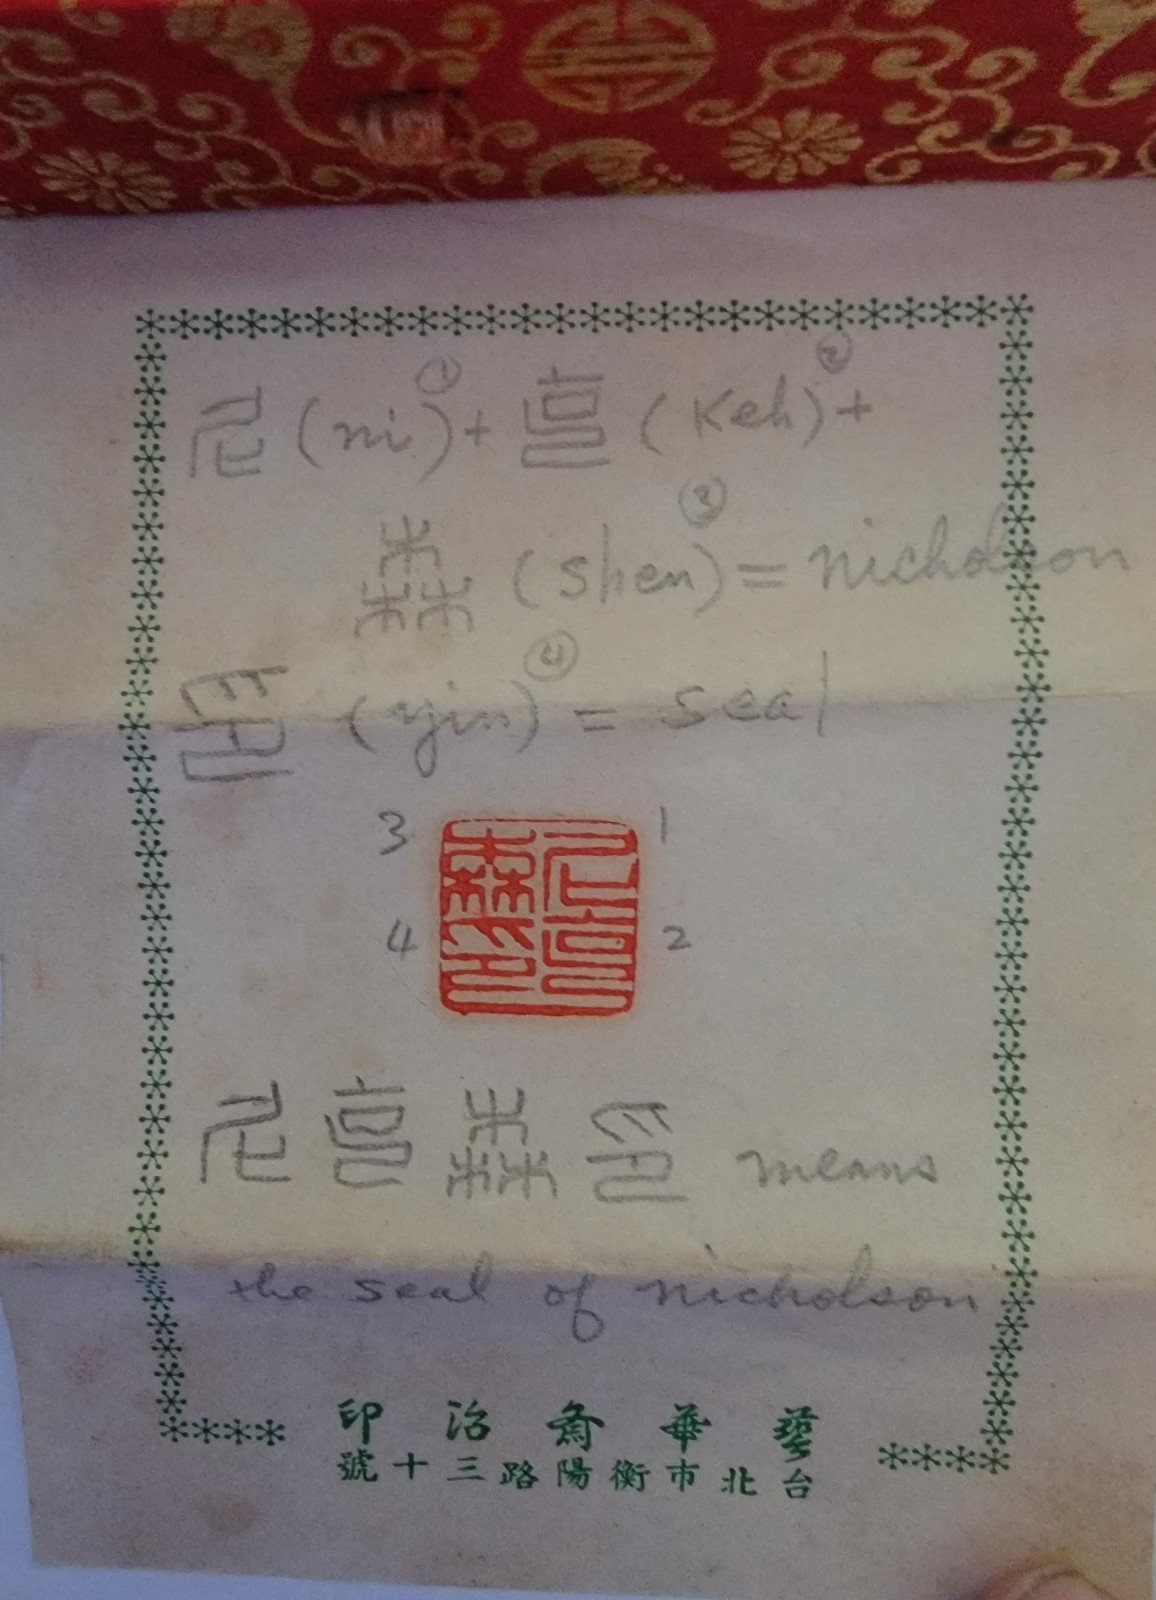 尼 (ni)① + 克 (Keh)② +
森 (shen)③ = nicholson
印 (yin)④ = seal
3 1
4 2
尼克森印
尼 克 森 印 means
the seal of nicholson
藝華齋治印
台北市衡陽路三十號